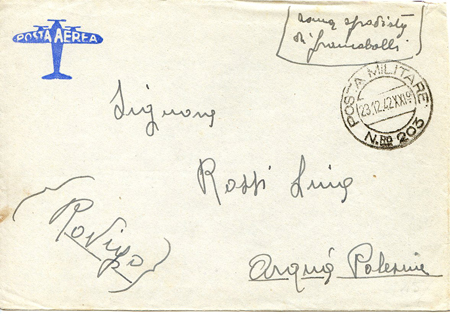 POSTA AEREA
zona sprovvista
di francobolli
POSTA MILITARE
23.12.42.XXIº
N.RO 203
Signora
Rossi Luigia
(Rovigo)
Arquà Polesine